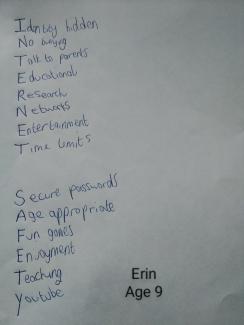 Idntity hidden
No bullying
Talk to parents
Educational
Research
Networks
Entertainment
Time limits
Secure passwords
Age appropriate
Fun games
Enjoyment
Teaching
Youtube
Erin
Age 9